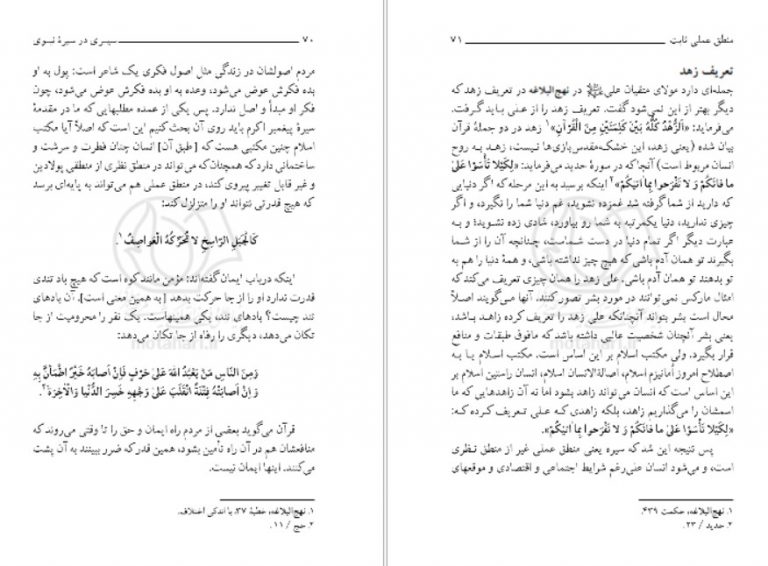 ۷۰ سیری در سیرهٔ نبوی
مردم اصولشان در زندگی مثل اصول فکری یک شاعر است: پول به او
بده فکرش عوض می‌شود، وعده به او بده فکرش عوض می‌شود، چون
فکر او مبدأ و اصل ندارد. پس یکی از عمده مطلبهایی که ما در مقدمهٔ
سیرهٔ پیغمبر اکرم باید روی آن بحث کنیم این است که اصلاً آیا مکتب
اسلام چنین مکتبی هست که [طبق آن] انسان چنان فطرت و سرشت و
ساختمانی دارد که همچنان‌که می‌تواند در منطق نظری از منطقی پولادین
و غیر قابل تغییر پیروی کند، در منطق عملی هم می‌تواند به پایه‌ای برسد
که هیچ قدرتی نتواند او را متزلزل کند:
کَالْجَبَلِ الرّاسِخِ لا تُحَرِّکُهُ الْعَواصِفُ ۱.
اینکه در باب ایمان گفته‌اند: مؤمن مانند کوه است که هیچ باد تندی
قدرت ندارد او را از جا حرکت بدهد [به همین معنی است]. آن بادهای
تند چیست؟ بادهای تند، یکی همینهاست. یک نفر را محرومیت از جا
تکان می‌دهد، دیگری را رفاه از جا تکان می‌دهد:
وَ مِنَ النّاسِ مَنْ یَعْبُدُ اللهَ عَلیٰ حَرْفٍ فَاِنْ اَصابَهُ خَیْرٌ اطْمَأَنَّ بِهِ
وَ اِنْ اَصابَتْهُ فِتْنَةٌ انْقَلَبَ عَلیٰ وَجْهِهِ خَسِرَ الدُّنْیا وَ الْاٰخِرَةَ ۲.
قرآن می‌گوید بعضی از مردم راه ایمان و حق را تا وقتی می‌روند که
منافعشان هم در آن راه تأمین بشود، همین قدر که ضرر ببینند به آن پشت
می‌کنند. اینها ایمان نیست.
۱. نهج‌البلاغه، خطبهٔ ۳۷، با اندکی اختلاف.
۲. حج / ۱۱.
منطق عملی ثابت ۷۱
تعریف زهد
جمله‌ای دارد مولای متقیان علی در نهج‌البلاغه در تعریف زهد که
دیگر بهتر از این نمی‌شود گفت. تعریف زهد را از علی باید گرفت.
می‌فرماید: «اَلزُّهْدُ کُلُّهُ بَیْنَ کَلِمَتَیْنِ مِنَ الْقُرْاٰنِ» ۱ زهد در دو جملهٔ قرآن
بیان شده (یعنی زهد، این خشک‌مقدس‌بازی‌ها نیست، زهد به روح
انسان مربوط است) آنجا که در سورهٔ حدید می‌فرماید: «لِکَیْلا تَأْسَوْا عَلیٰ
ما فاتَکُمْ وَ لا تَفْرَحوا بِما اٰتیٰکُمْ» ۲ اینکه برسید به این مرحله که اگر دنیایی
که دارید از شما گرفته شد غمزده نشوید، غم دنیا شما را نگیرد، و اگر
چیزی ندارید، دنیا یکمرتبه به شما رو بیاورد، شادی زده نشوید؛ و به
عبارت دیگر اگر تمام دنیا در دست شماست، چنانچه آن را از شما
بگیرند تو همان آدم باشی که هیچ چیز نداشته باشی، و همهٔ دنیا را هم به
تو بدهند تو همان آدم باشی. علی زهد را همان چیزی تعریف می‌کند که
امثال مارکس نمی‌توانند در مورد بشر تصور کنند. آنها می‌گویند اصلاً
محال است بشر بتواند آنچنانکه علی زهد را تعریف کرده زاهد باشد،
یعنی بشر آنچنان شخصیت عالیی داشته باشد که مافوق طبقات و منافع
قرار بگیرد. ولی مکتب اسلام بر این اساس است. مکتب اسلام یا به
اصطلاح امروز اُمانیزم اسلام، اصالةالانسان اسلام، انسان راستین اسلام بر
این اساس است که انسان می‌تواند زاهد بشود اما نه آن زاهدهایی که ما
اسمشان را می‌گذاریم زاهد، بلکه زاهدی که علی تعریف کرده که:
«لِکَیْلا تَأْسَوْا عَلیٰ ما فاتَکُمْ وَ لا تَفْرَحوا بِما اٰتیٰکُمْ».
پس نتیجه این شد که سیره یعنی منطق عملی غیر از منطق نظری
است، و می‌شود انسان علی‌رغم شرایط اجتماعی و اقتصادی و موقعهای
۱. نهج‌البلاغه، حکمت ۴۳۹.
۲. حدید / ۲۳.
motahari.ir
motahari.ir